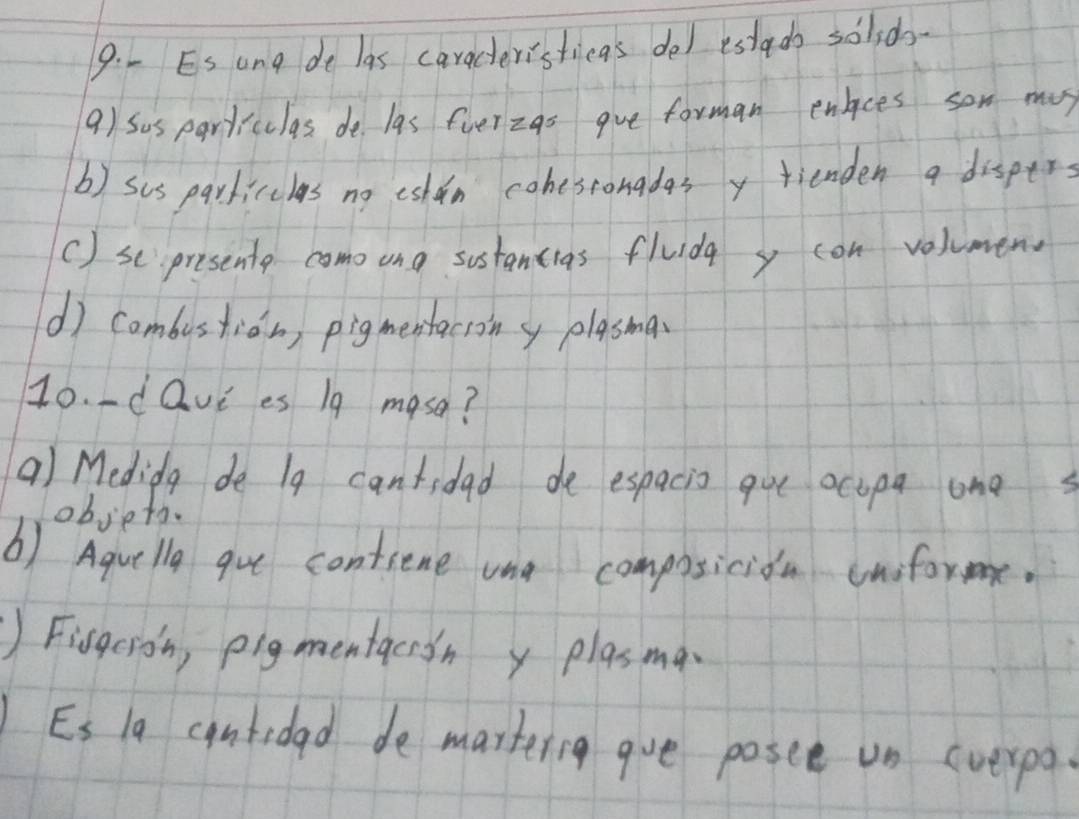 9.- Es una de las características del estado sólido-
a) sus partículas de las fuerzas que forman enlaces son muy
b) sus partículas no están cohesionadas y tienden a dispers
c) se presenta como una sustancias fluida y con volumen.
d) combustión, pigmentación y plasma.
10.-¿Qué es la masa?
a) Medida de la cantidad de espacio que ocupa una s
objeto.
b) Aquella que contiene una composición uniforme.
) Fijación, pigmentación y plasma.
) Es la cantidad de marteria que posee un cuerpo.